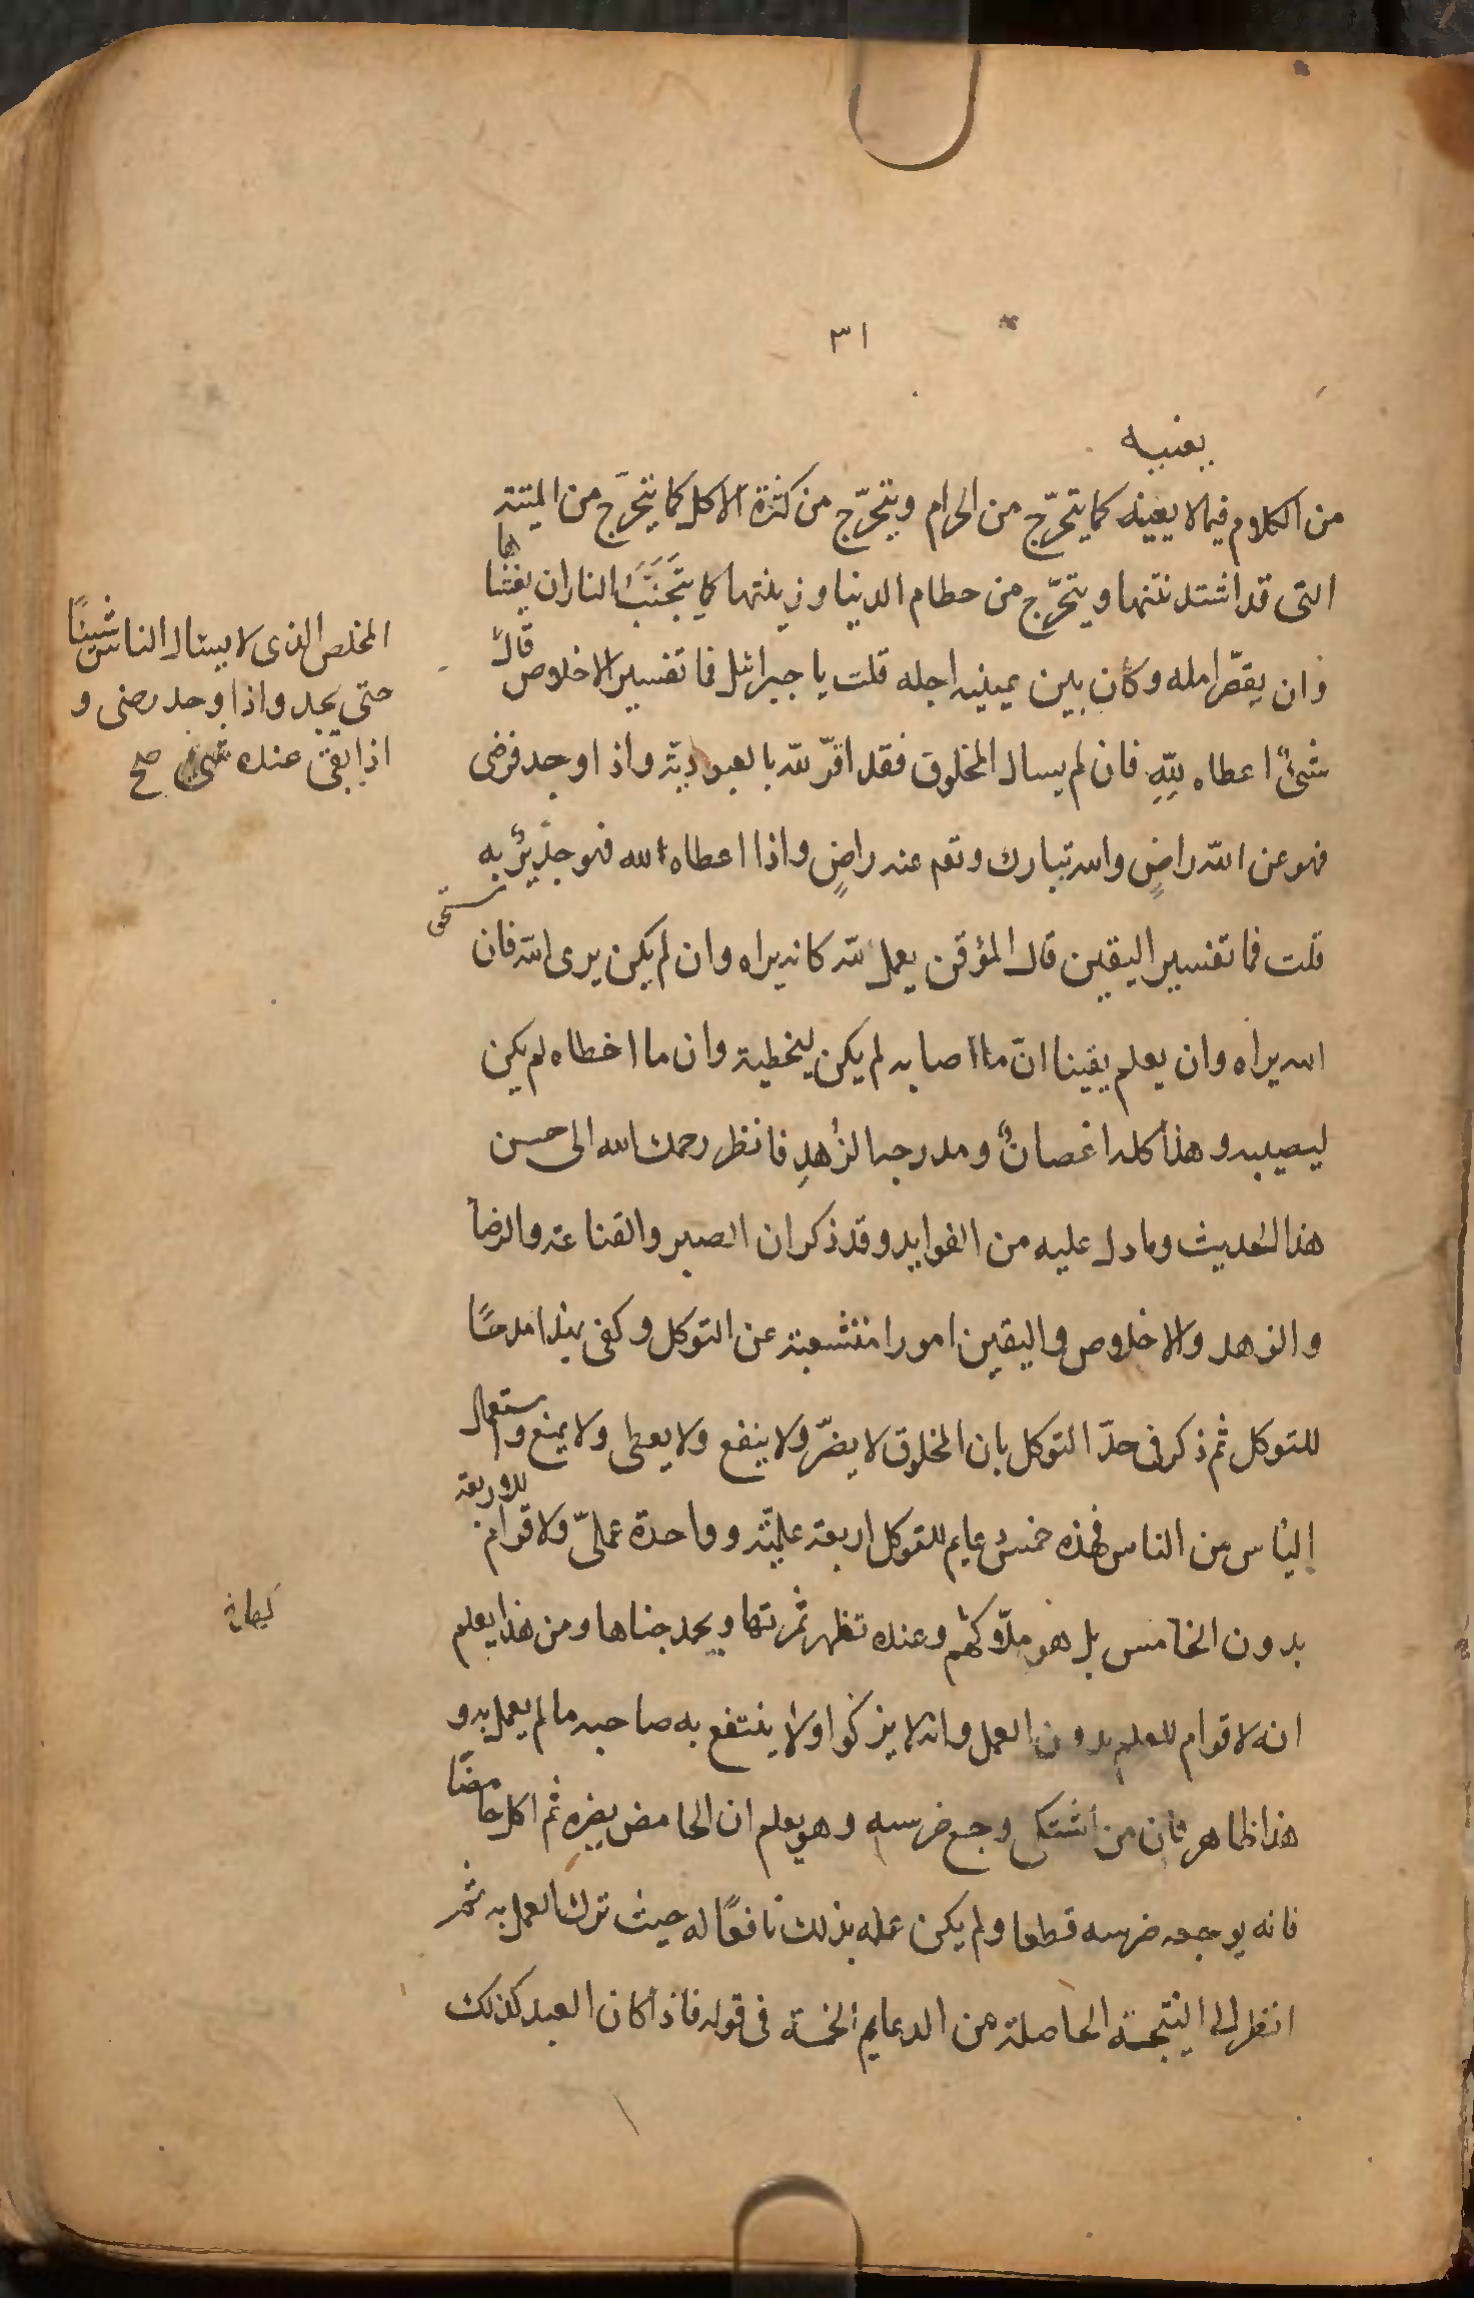 ٣١
يعنيه
من الكلام فيما لا يعينه كما يتحرّج من الحرام ويتحرّج من كثرة الاكل كما يتحرّج من الميتة
التى قد اشتد نتنها ويتحرّج من حطام الدنيا وزينتها كما يتجنّب النار ان يغشاها
وان يقصّر امله وكأن بين عينيه اجله قلت يا جبرائيل فما تفسير الاخلاص قال
المخلص الذى لا يسئال الناس شيئًا
حتى يجد واذا وجد رضى و
اذا بقى عنده شئ صح
شئٌ اعطاه للهِ فان لم يسال المخلوق فقد اقرّ لله بالعبوديّة واذا وجد فرضى
فهو عن الله راضٍ والله تبارك وتعم عنه راضٍ واذا اعطاه لله فهو جديرٌ به
قلت فما تفسير اليقين قال المؤقن يعمل لله كانه يراه وان لم يكن يرى الله فان
الله يراه وان يعلم يقينا انّ ما اصابه لم يكن ليخطيه وان ما اخطاه لم يكن
ليصيبه وهذا كله اغصانٌ ومدرجه الزُهدِ فانظر رحمك الله الى حسن
هذا الحديث وما دل عليه من الفوايد وقد ذكر ان الصبر والقناعة والرضا
والزهد والاخلاص واليقين امورا متشعبة عن التوكل وكفى بهذا مدحًا
للتوكل ثم ذكر فى حدّ التوكل بان المخلوق لا يضرّ ولا ينفع ولا يعطى ولا يمنع واستعمال
إلياس من الناس فهذه خمس دعايم للتوكل اربعة علميّة وواحدة عمليّ ولا قوام للاربعة
بدون الخامس بل هو ملاوكهم وعنده تظهر ثمرتها ويحمد جناها ومن هذا يعلم
انه لا قوام للعلم بدون العمل وانه لا يزكوا ولا ينتفع به صاحبه ما لم يعمل به و
هذا ظاهر فان من اشتكى وجع ضرسه وهو يعلم ان الحامض يضره ثم اكل حامضًا
فانه يوجعه ضرسه قطعا ولم يكن علمه بذلك نافعًا له حيث ترك العمل به ثم
انظر الى النتيجة الحاصلة من الدعايم الخمسة فى قوله فاذا كان العبد كذلك